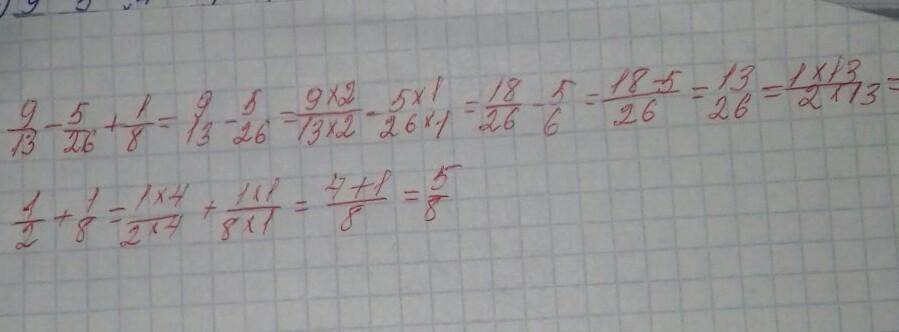 9/13 - 5/26 + 1/8 = 9/13 - 5/26 = 9×2/13×2 - 5×1/26×1 = 18/26 - 5/6 = 18-5/26 = 13/26 = 1×13/2×13 =
1/2 + 1/8 = 1×4/2×4 + 1×1/8×1 = 4+1/8 = 5/8